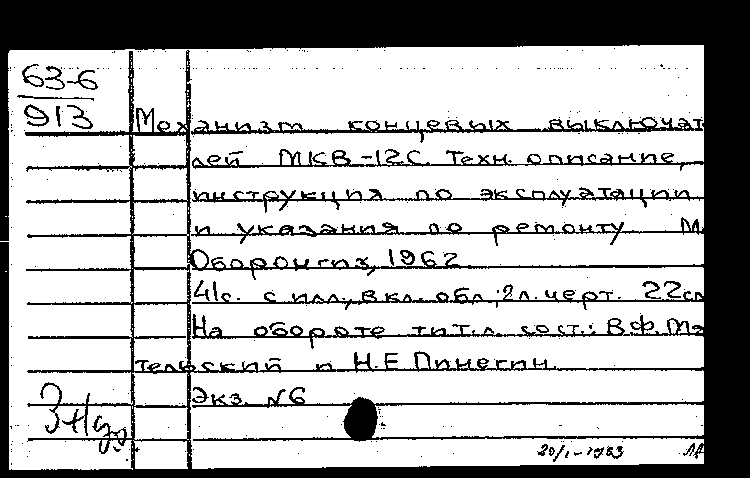 63-6
913
Механизм концевых выключат
лей МКВ-12С. Техн. описание,
инструкция по эксплуатации
и указания по ремонту М.
Оборонгиз, 1962
41с. с илл., вкл. обл.; 2л. черт. 22см
На обороте тит.л. сост.: В.Ф. Мя
тельский и Н.Е Пинегин.
Экз. №6
20/I-1983